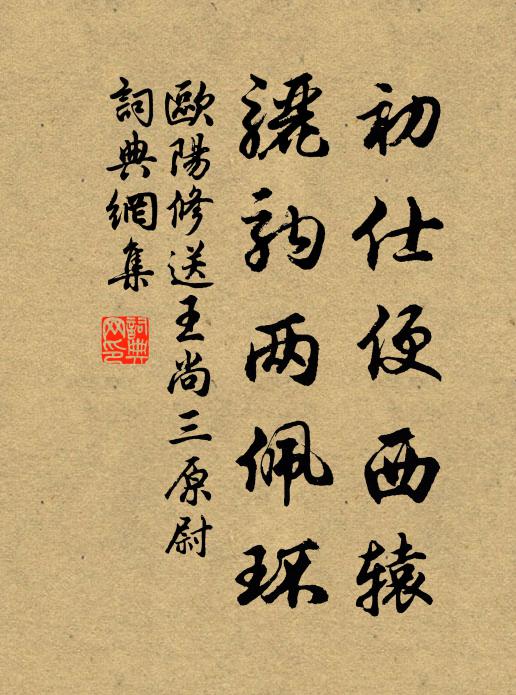 初仕便西辕
驪駒两佩环
歐陽修送王尚三原尉
詞典網集
詞典
网印